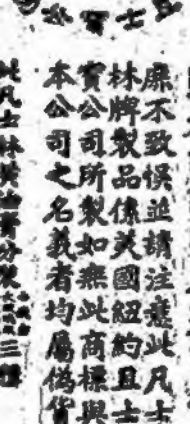 士寶公
庶不致悞並請注意此凡士
林牌製品係美國紐約且士
寶公司所製如無此商標與
本公司之名義者均屬偽貨
此凡士林
分裝
三種